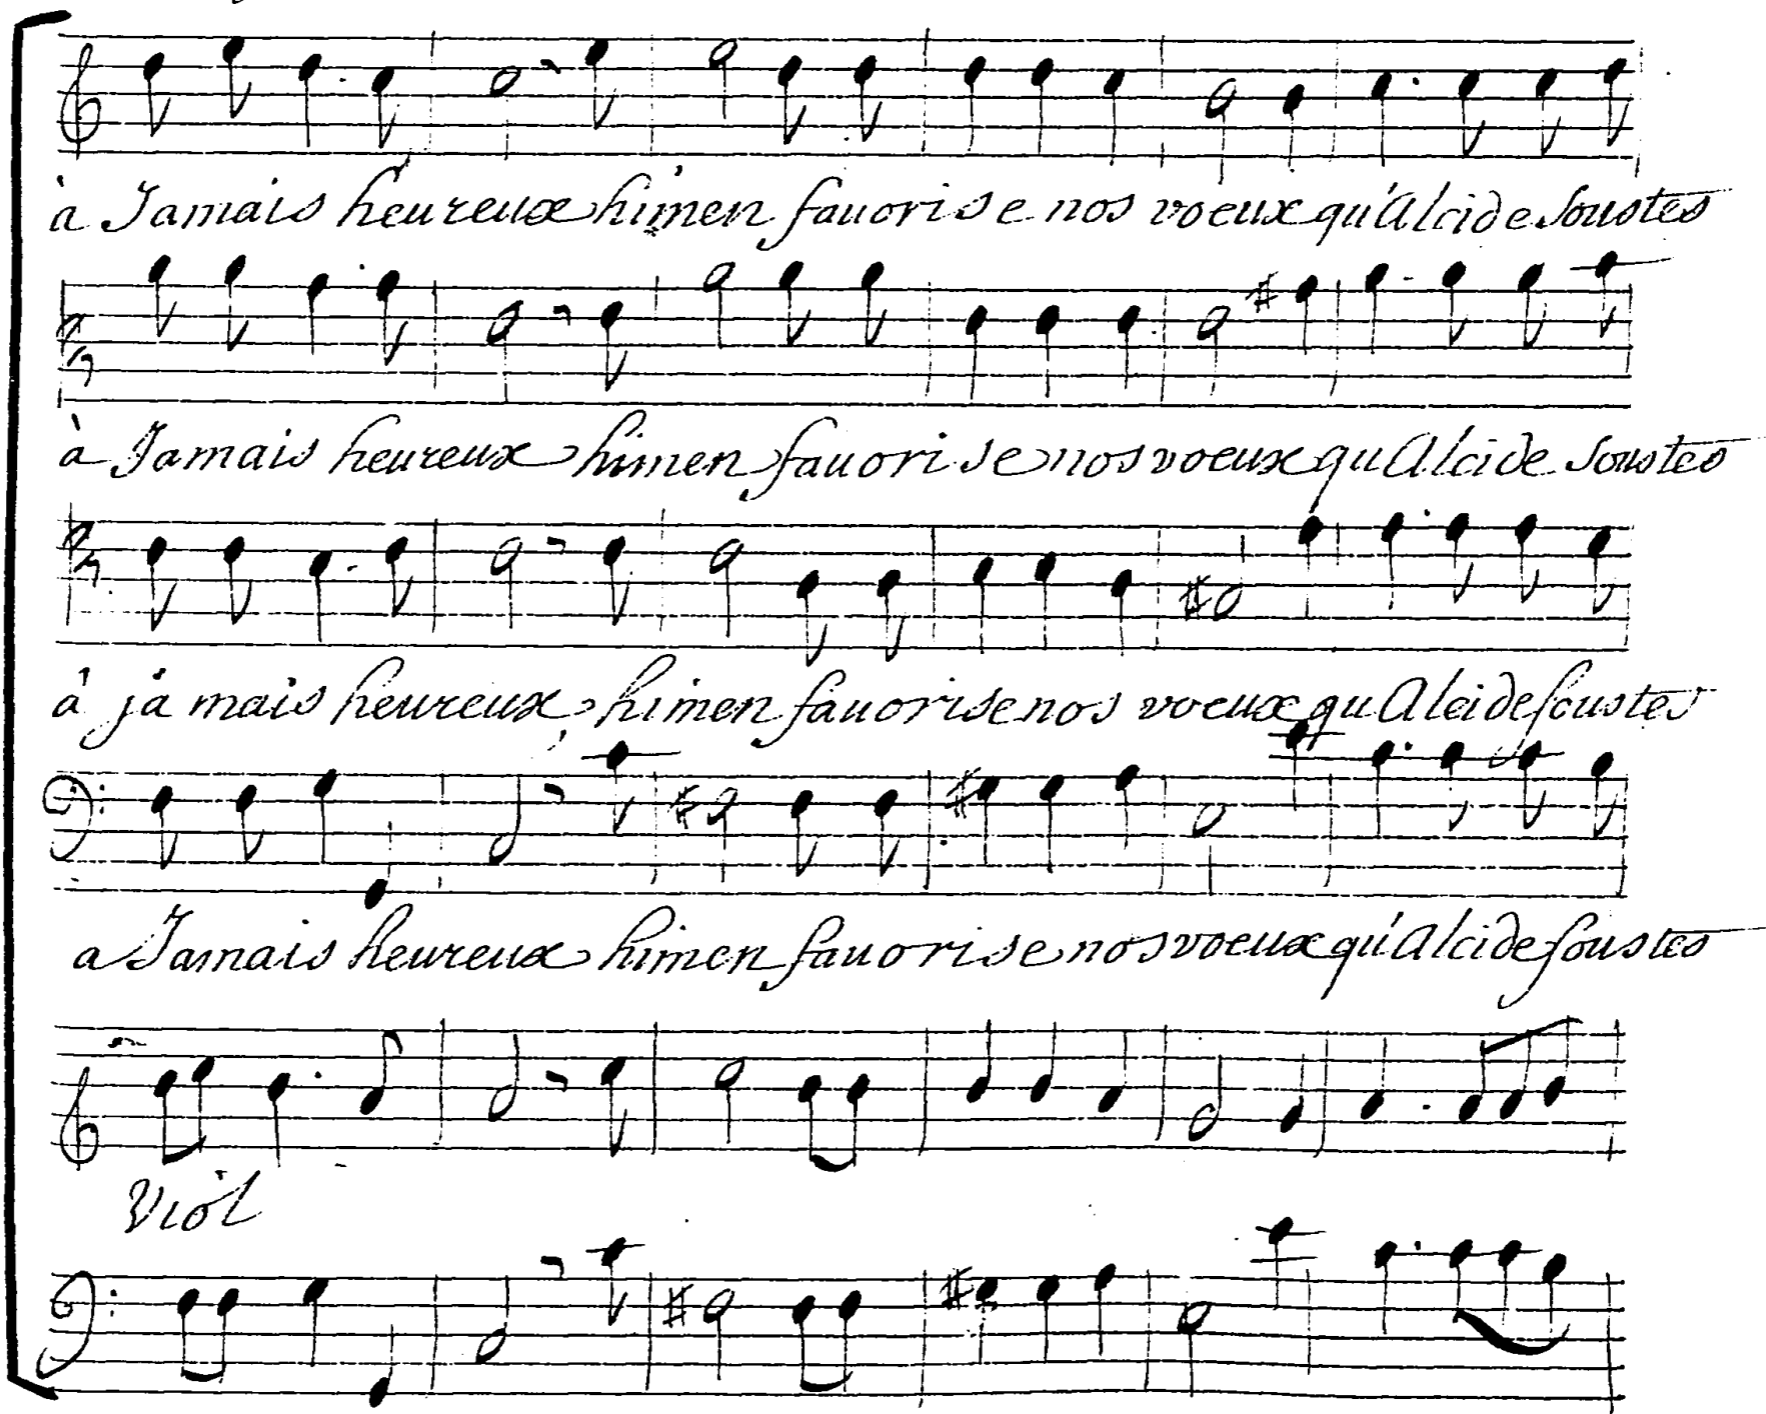 à Jamais heureux himen fauorise nos voeux qu'Alcide sous tes
à Jamais heureux himen fauorise nos voeux qu Alcide sous tes
à jamais heureux himen fauorise nos voeux qu Alcide sous tes
a Jamais heureux himen fauorise nos voeux qu'Alcide sous tes
Viol